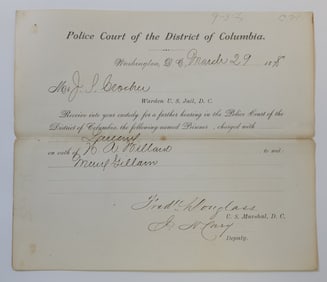 Police Court of the District of Columbia.
Washington, D. C. March 29 1878
Mr. J. S. Crocker
Warden U. S. Jail, D. C.
Receive into your custody for a further hearing in the Police Court of the
District of Columbia, the following named Prisoner , charged with
Larceny
on oath of A. Willard to wit:
Gillam
Fredk Douglass
U. S. Marshal, D. C.
Deputy.